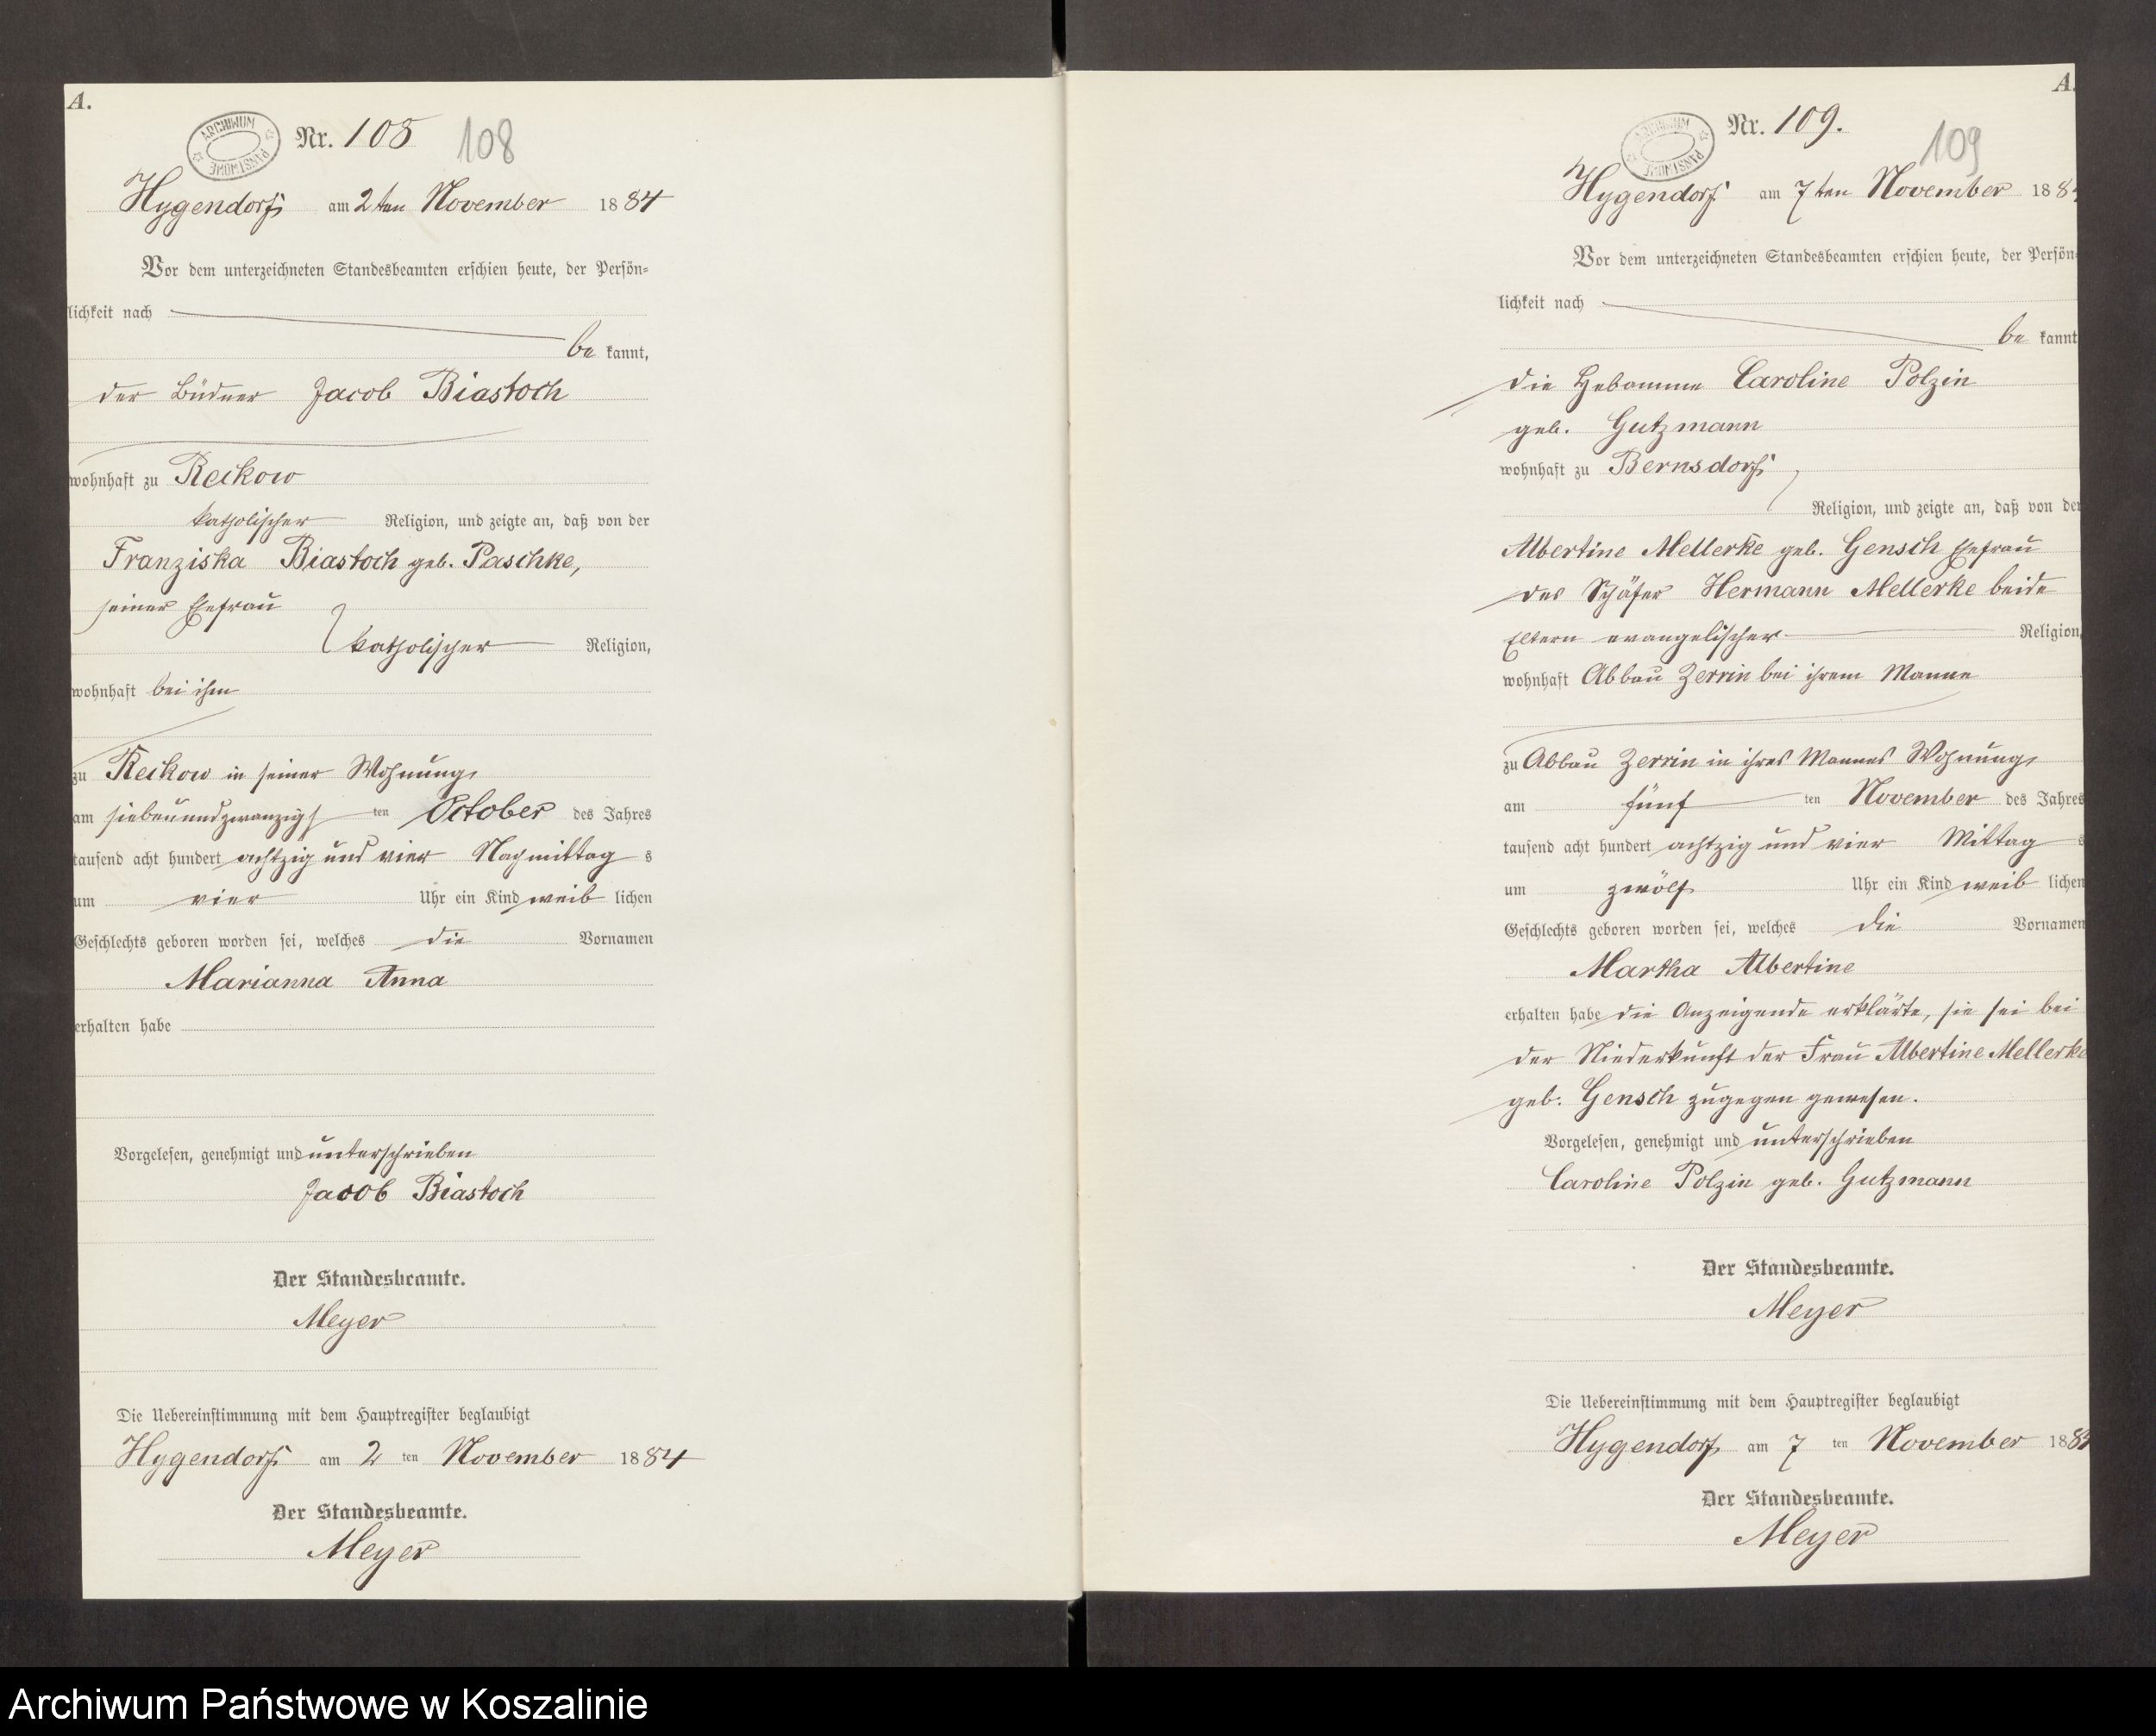 A.
ARCHIWUM PAŃSTWOWE
Nr. 108 108
Hygendorf am 2ten November 1884
Vor dem unterzeichneten Standesbeamten erschien heute, der Persön-
lichkeit nach
be kannt,
der Büdner Jacob Biastoch
wohnhaft zu Reckow
katholischer Religion, und zeigte an, daß von der
Franziska Biastoch geb. Paschke,
seiner Ehefrau
katholischer Religion,
wohnhaft bei ihm
zu Reckow in seiner Wohnung,
am siebenundzwanzigsten October des Jahres
tausend acht hundert achtzig und vier Nachmittags
um vier Uhr ein Kind weiblichen
Geschlechts geboren worden sei, welches die Vornamen
Marianna Anna
erhalten habe
Vorgelesen, genehmigt und unterschrieben
Jacob Biastoch
Der Standesbeamte.
Meyer
Die Uebereinstimmung mit dem Hauptregister beglaubigt
Hygendorf am 2 ten November 1884
Der Standesbeamte.
Meyer
A.
ARCHIWUM PAŃSTWOWE
Nr. 109. 109
Hygendorf am 7ten November 188
Vor dem unterzeichneten Standesbeamten erschien heute, der Persön-
lichkeit nach
be kannt
die Hebamme Caroline Polzin
geb. Gutzmann
wohnhaft zu Bernsdorf,
Religion, und zeigte an, daß von der
Albertine Mellerke geb. Gensch Ehefrau
des Schäfer Hermann Mellerke beide
Eltern evangelischer Religion,
wohnhaft Abbau Zerrin bei ihrem Manne
zu Abbau Zerrin in ihres Mannes Wohnung,
am fünf ten November des Jahres
tausend acht hundert achtzig und vier Mittags
um zwölf Uhr ein Kind weiblichen
Geschlechts geboren worden sei, welches die Vornamen
Martha Albertine
erhalten habe die Anzeigende erklärte, sie sei bei
der Niederkunft der Frau Albertine Mellerke
geb. Gensch zugegen gewesen.
Vorgelesen, genehmigt und unterschrieben
Caroline Polzin geb. Gutzmann
Der Standesbeamte.
Meyer
Die Uebereinstimmung mit dem Hauptregister beglaubigt
Hygendorf am 7 ten November 1884
Der Standesbeamte.
Meyer
Archiwum Państwowe w Koszalinie